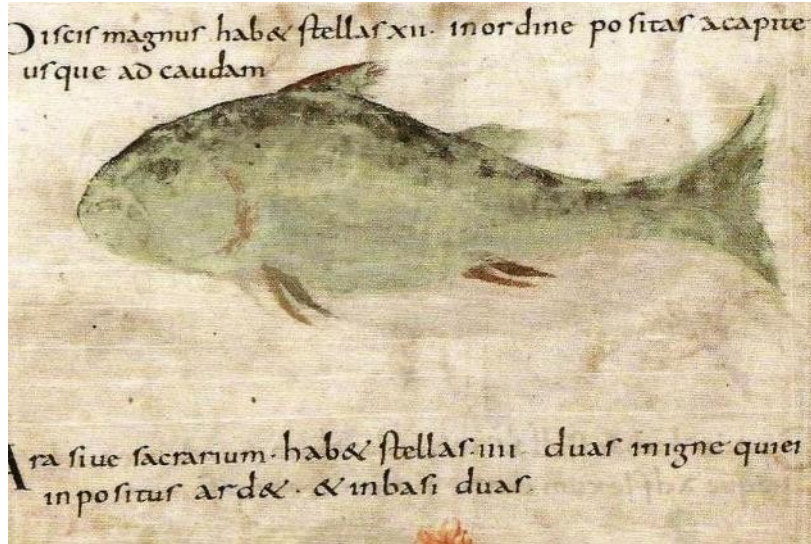 Piscis magnus hab& stellas xii· in ordine positas a capite
usque ad caudam
Ara sive sacrarium· hab& stellas· iiii duas in igne quiei
inpositus ard&· & in basi duas·